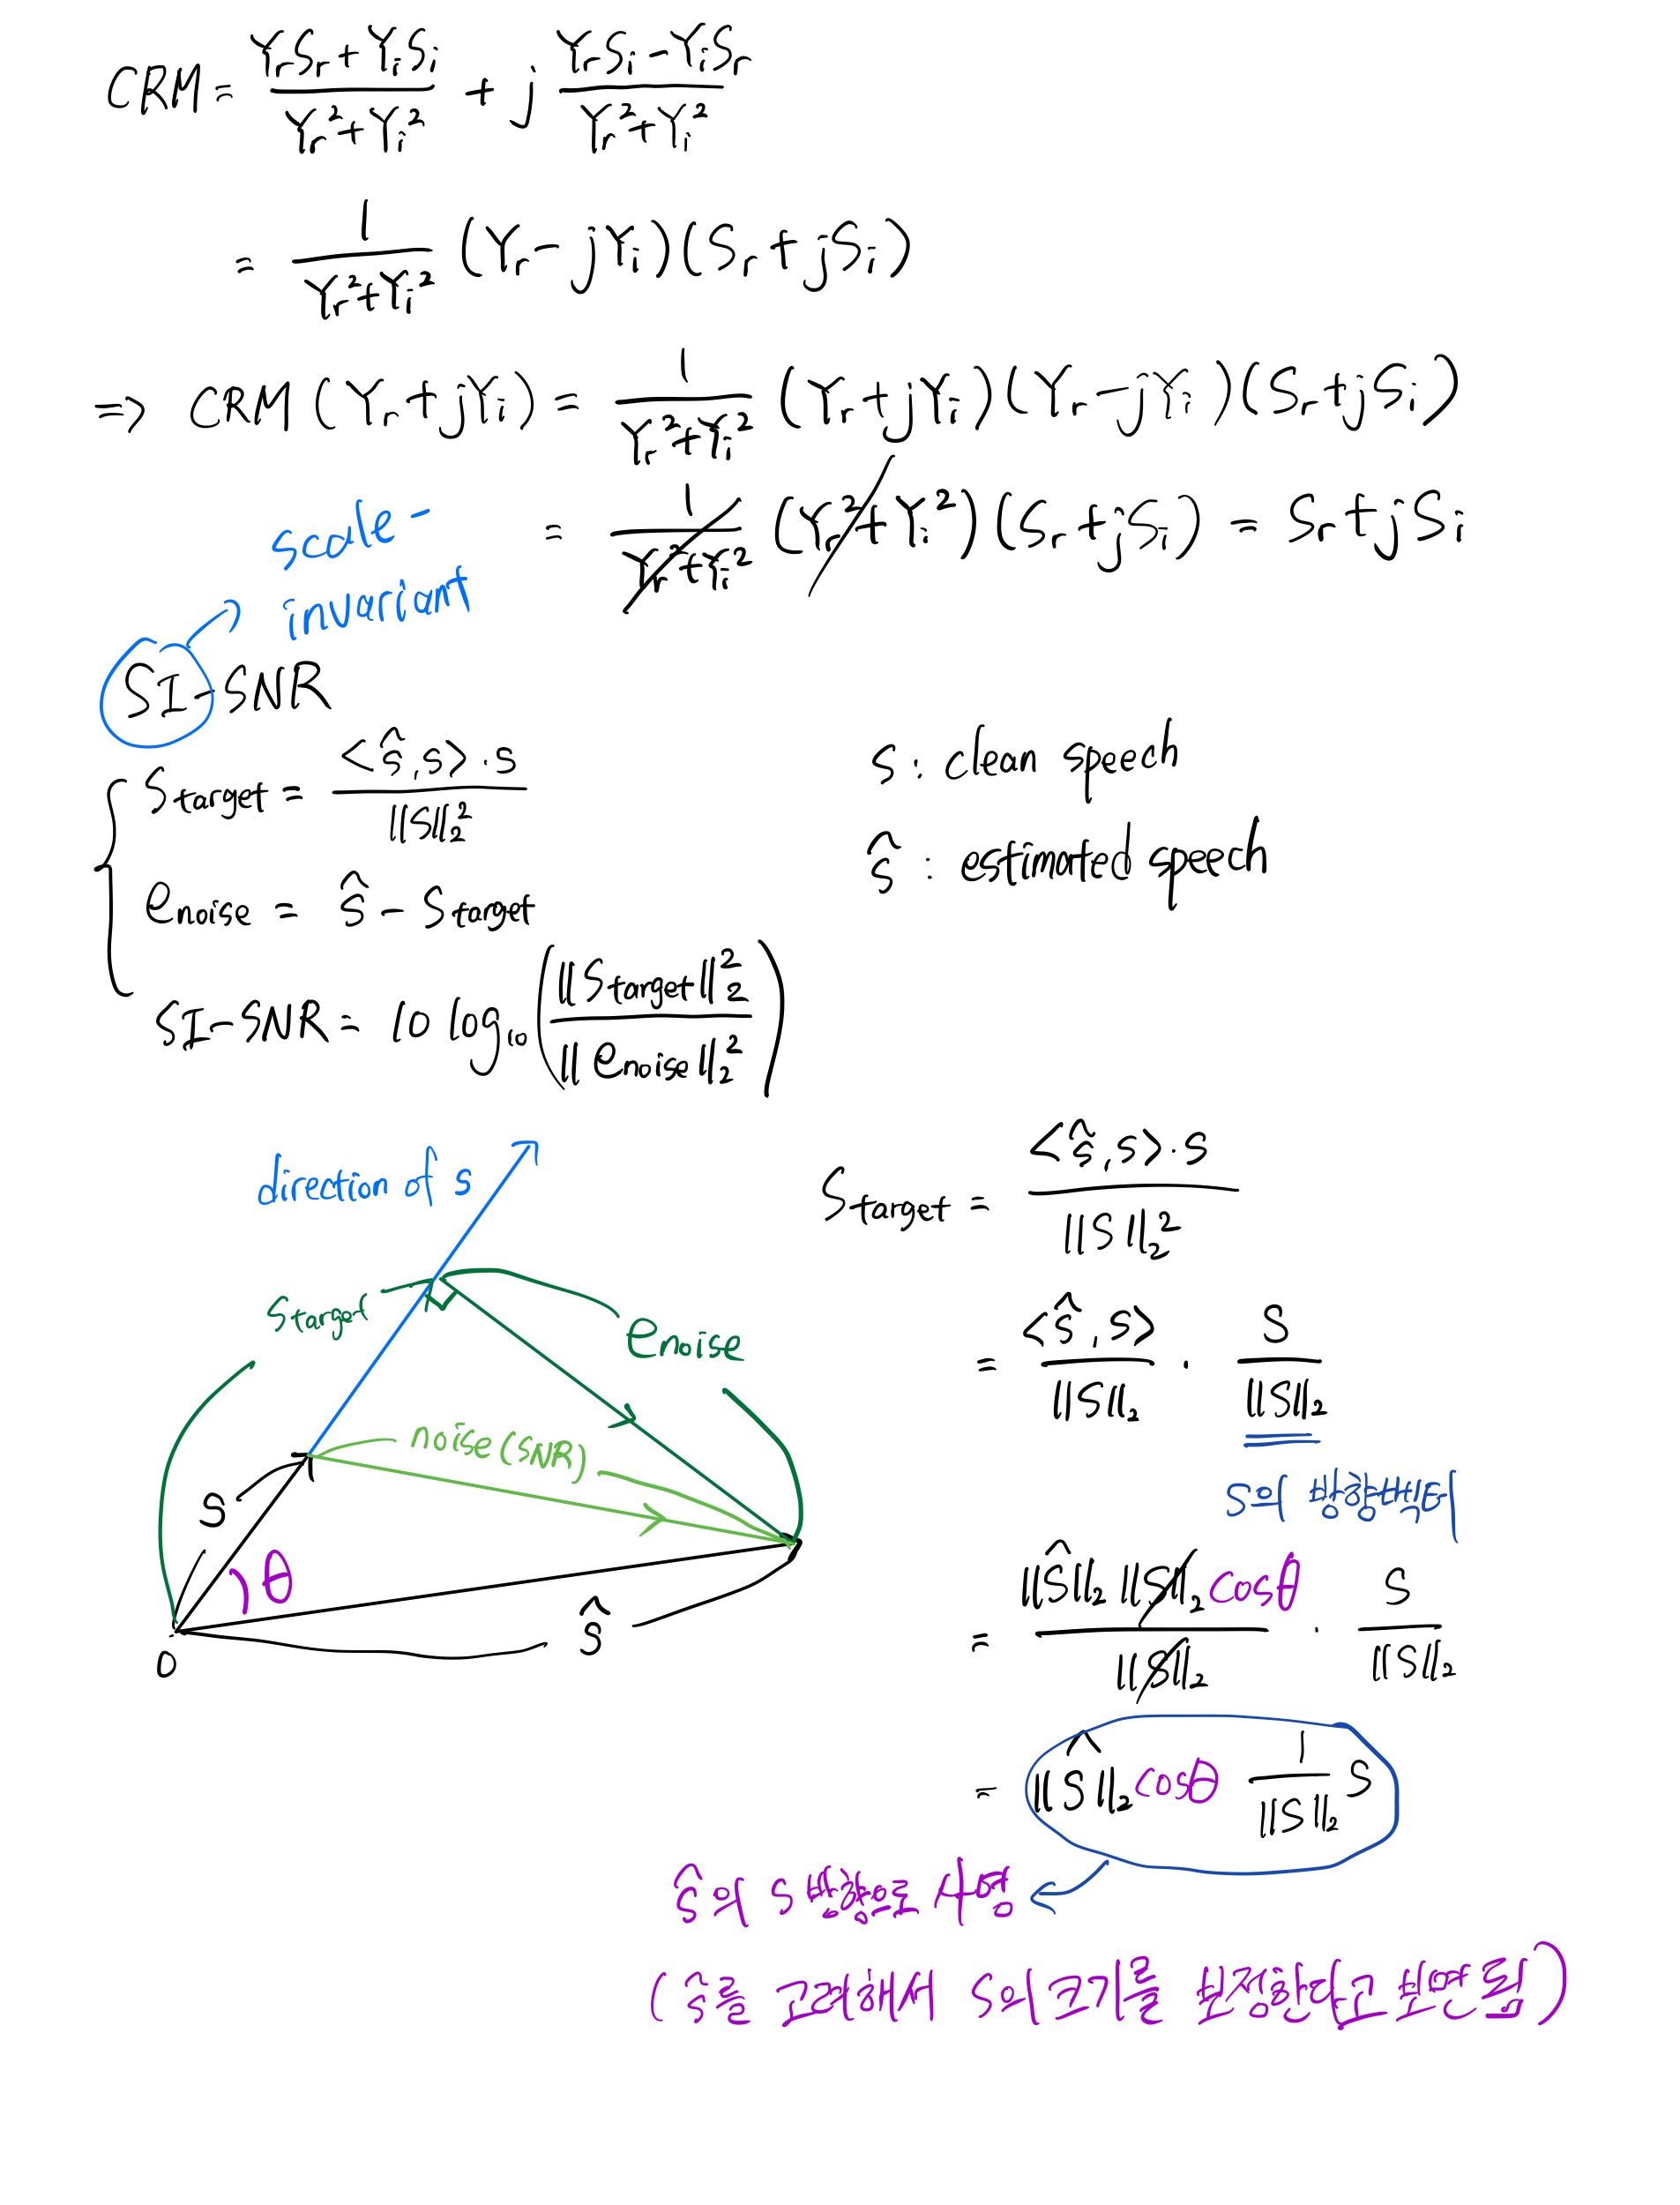 CRM = \frac{Y_r S_r + Y_i S_i}{Y_r^2 + Y_i^2} + j \frac{Y_r S_i - Y_i S_r}{Y_r^2 + Y_i^2}
= \frac{1}{Y_r^2 + Y_i^2} (Y_r - jY_i)(S_r + jS_i)
=> CRM (Y_r + jY_i) = \frac{1}{Y_r^2 + Y_i^2} (Y_r + jY_i)(Y_r - jY_i)(S_r + jS_i)
= \frac{1}{Y_r^2 + Y_i^2} (Y_r^2 + Y_i^2)(S_r + jS_i) = S_r + jS_i
scale-
invariant
SI-SNR
S_{target} = \frac{<\hat{s}, s> \cdot s}{||S||_2^2}
s : clean speech
\hat{s} : estimated speech
e_{noise} = \hat{s} - S_{target}
SI-SNR = 10 log_{10} \left( \frac{||S_{target}||_2^2}{||e_{noise}||_2^2} \right)
direction of s
S_{target}
e_{noise}
noise (SNR)
S
θ
\hat{s}
0
S_{target} = \frac{<\hat{s}, s> \cdot s}{||S||_2^2}
= \frac{<\hat{s}, s>}{||S||_2} \cdot \frac{S}{||S||_2}
S의 방향벡터
= \frac{||\hat{S}||_2 ||S||_2 cosθ}{||S||_2} \cdot \frac{S}{||S||_2}
= ||\hat{S}||_2 cosθ \frac{1}{||S||_2} S
\hat{s}의 S 방향으로 사영
(\hat{s}를 고려해서 S의 크기를 보정한다고 보면 됨)